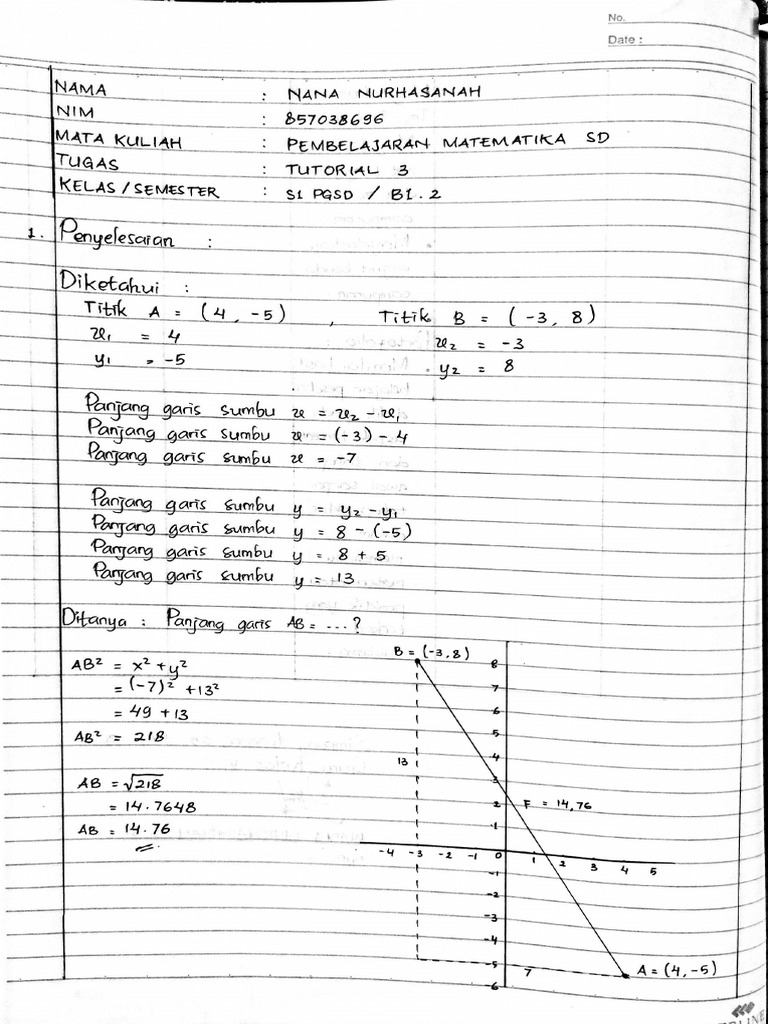 No.
Date :
NAMA : NANA NURHASANAH
NIM : 857038696
MATA KULIAH : PEMBELAJARAN MATEMATIKA SD
TUGAS : TUTORIAL 3
KELAS / SEMESTER : S1 PGSD / B1.2
1. Penyelesaian :
Diketahui :
Titik A = (4, -5) , Titik B = (-3, 8)
x₁ = 4 x₂ = -3
y₁ = -5 y₂ = 8
Panjang garis sumbu x = x₂ - x₁
Panjang garis sumbu x = (-3) - 4
Panjang garis sumbu x = -7
Panjang garis sumbu y = y₂ - y₁
Panjang garis sumbu y = 8 - (-5)
Panjang garis sumbu y = 8 + 5
Panjang garis sumbu y = 13
Ditanya : Panjang garis AB = ... ?
AB² = x² + y²
= (-7)² + 13²
= 49 + 13
AB² = 218
AB = √218
= 14.7648
AB = 14.76
B = (-3, 8)
8
7
6
5
4
3
2
1
13
F = 14,76
-4 -3 -2 -1 0 1 2 3 4 5
-1
-2
-3
-4
-5
-6
7
A = (4, -5)